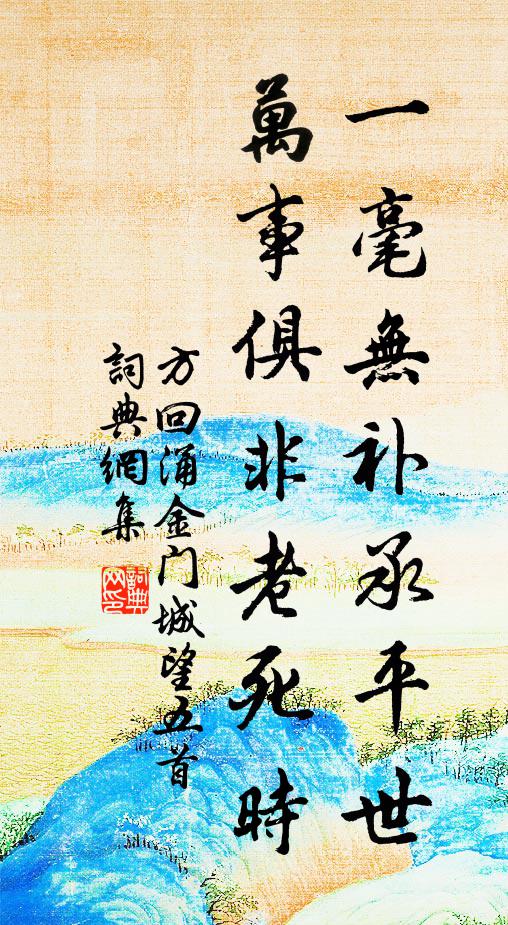 一毫無补承平世
萬事俱非老死時
方回涌金门城望五首
詞典網集
詞典網印